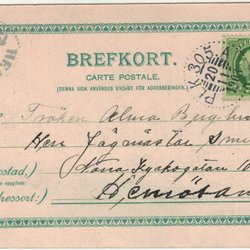 BREFKORT.
CARTE POSTALE.
(DENNA SIDA ANVÄNDES ENDAST FÖR ADRESSERINGEN.)
PKXP 305
20
Fröken Alma Berg
Herr Jägmästar
Norra Kyrkogatan 10
ostad,)
Hernösan
dressort:)